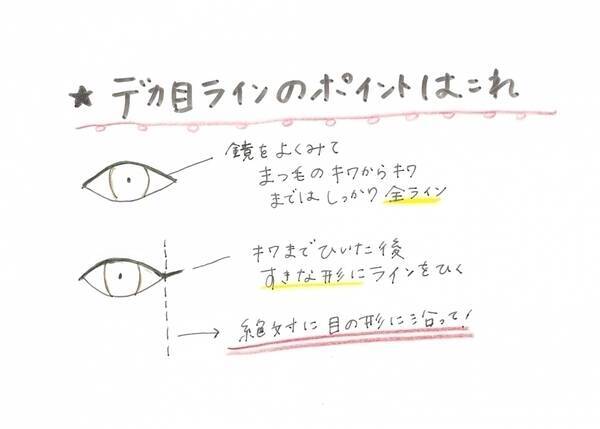 ★ デカ目ラインのポイントはこれ
鏡をよくみて
まつ毛のキワからキワ
まではしっかり全ライン
キワまでひいた後
すきな形にラインをひく
絶対に目の形に沿って!